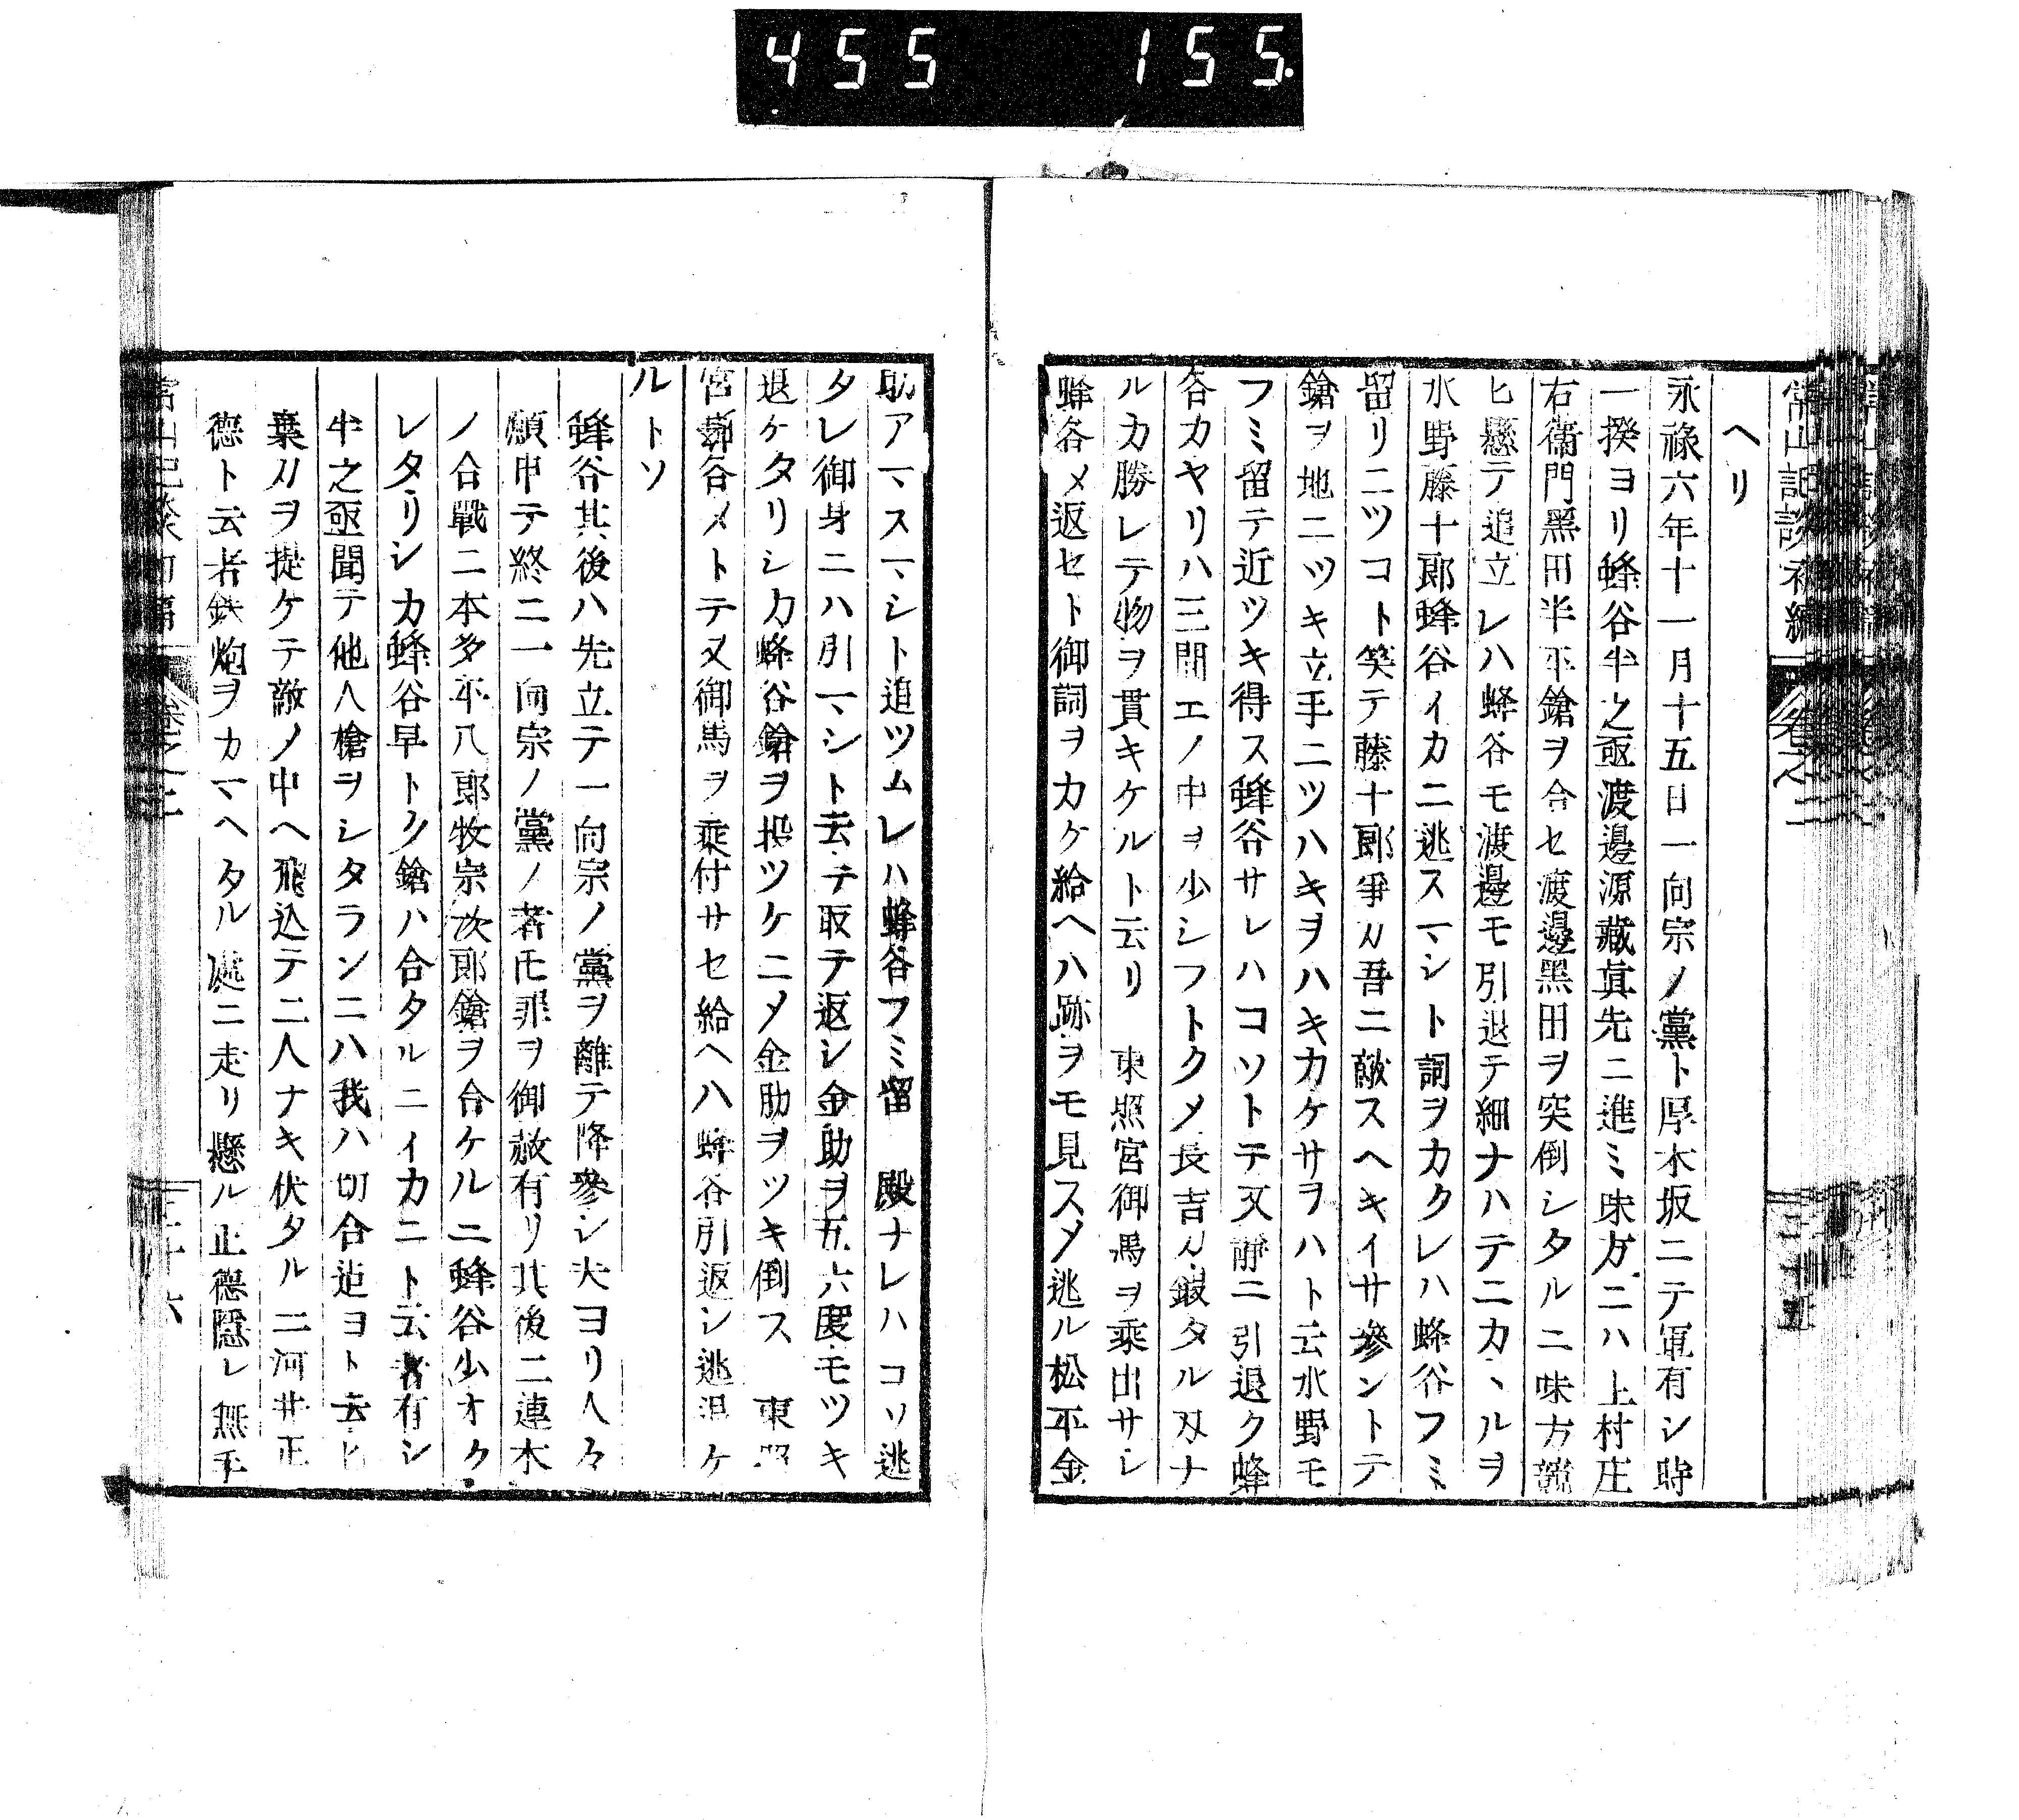 455 155.
常山記談初編 卷之二
ヘリ
永祿六年十一月十五日一向宗ノ黨ト厚木坂ニテ軍有シ時
一揆ヨリ蜂谷半之亟渡邉源藏眞先ニ進ミ味方ニハ上村庄
右衞門黑田半平鎗ヲ合セ渡邉黑田ヲ突倒シタルニ味方競
ヒ懸テ追立レハ蜂谷モ渡邉モ引退テ細ナハテニカヽルヲ
水野藤十郎蜂谷イカニ逃スマシト詞ヲカクレハ蜂谷フミ
留リニツコト笑テ藤十郎爭カ吾ニ敵スヘキイサ參ントテ
鎗ヲ地ニツキ立手ニツハキヲハキカケサヲハト云水野モ
フミ留テ近ツキ得ス蜂谷サレハコソトテ又靜ニ引退ク蜂
谷カヤリハ三間エノ中ヲ少シフトクメ長吉カ鍛タル刄ナ
ルカ勝レテ物ヲ貫キケルト云リ　東照宮御馬ヲ乘出サレ
蜂谷メ返セト御詞ヲカケ給ヘハ跡ヲモ見スメ逃ル松平金
助アマスマシト追ツムレハ蜂谷フミ留　殿ナレハコソ逃
タレ御身ニハ引マシト云テ取テ返シ金助ヲ五六度モツキ
退ケタリシカ蜂谷鎗ヲ投ツケニメ金助ヲツキ倒ス　東照
宮蜂谷メトテ又御馬ヲ乘付サセ給ヘハ蜂谷引返シ逃退ケ
ルトソ
蜂谷其後ハ先立テ一向宗ノ黨ヲ離テ降參シ夫ヨリ人々
願申テ終ニ一向宗ノ黨ノ者モ罪ヲ御赦有リ其後二連木
ノ合戰ニ本多平八郎牧宗次郎鎗ヲ合ケルニ蜂谷少オク
レタリシカ蜂谷早トク鎗ハ合タルニイカニト云者有シ
半之亟聞テ他人槍ヲシタランニハ我ハ切合迠ヨト云ヒ
棄刀ヲ提ケテ敵ノ中ヘ飛込テ二人ナキ伏タルニ河井正
德ト云者鉄炮ヲカマヘタル處ニ走リ懸ル正德隱レ無手